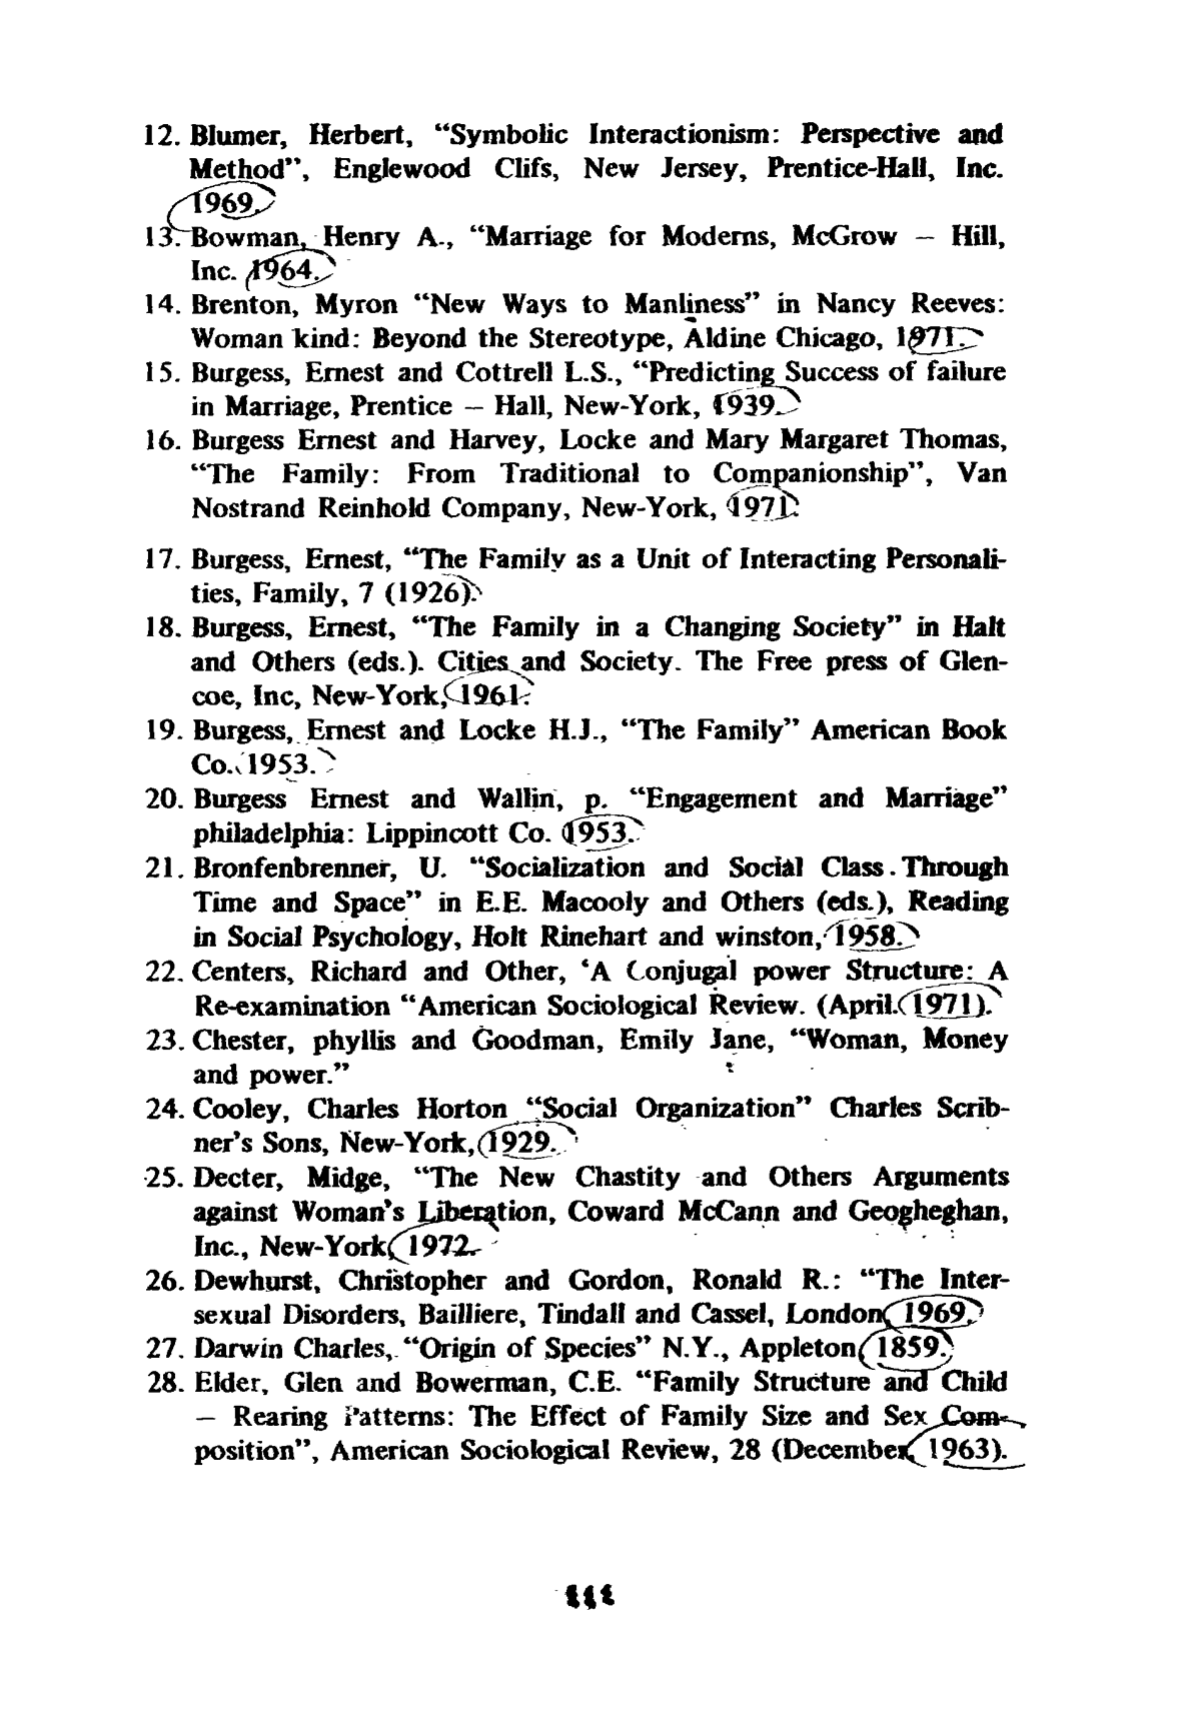 12. Blumer, Herbert, “Symbolic Interactionism: Perspective and
Method”, Englewood Clifs, New Jersey, Prentice-Hall, Inc.
1969.
13. Bowman, Henry A., “Marriage for Moderns, McGrow – Hill,
Inc. 1964.
14. Brenton, Myron “New Ways to Manliness” in Nancy Reeves:
Woman kind: Beyond the Stereotype, Aldine Chicago, 1971.
15. Burgess, Ernest and Cottrell L.S., “Predicting Success of failure
in Marriage, Prentice – Hall, New-York, 1939.
16. Burgess Ernest and Harvey, Locke and Mary Margaret Thomas,
“The Family: From Traditional to Companionship”, Van
Nostrand Reinhold Company, New-York, 1971.
17. Burgess, Ernest, “The Family as a Unit of Interacting Personali-
ties, Family, 7 (1926).
18. Burgess, Ernest, “The Family in a Changing Society” in Halt
and Others (eds.). Cities and Society. The Free press of Glen-
coe, Inc, New-York, 1961.
19. Burgess, Ernest and Locke H.J., “The Family” American Book
Co. 1953.
20. Burgess Ernest and Wallin, p. “Engagement and Marriage”
philadelphia: Lippincott Co. 1953.
21. Bronfenbrenner, U. “Socialization and Social Class . Through
Time and Space” in E.E. Macooly and Others (eds.), Reading
in Social Psychology, Holt Rinehart and winston, 1958.
22. Centers, Richard and Other, ‘A Conjugal power Structure: A
Re-examination “American Sociological Review. (April. 1971).
23. Chester, phyllis and Goodman, Emily Jane, “Woman, Money
and power.”
24. Cooley, Charles Horton “Social Organization” Charles Scrib-
ner’s Sons, New-York, 1929.
25. Decter, Midge, “The New Chastity and Others Arguments
against Woman’s Liberation, Coward McCann and Geogheghan,
Inc., New-York, 1972.
26. Dewhurst, Christopher and Gordon, Ronald R.: “The Inter-
sexual Disorders, Bailliere, Tindall and Cassel, London, 1969.
27. Darwin Charles, “Origin of Species” N.Y., Appleton, 1859.
28. Elder, Glen and Bowerman, C.E. “Family Structure and Child
– Rearing Patterns: The Effect of Family Size and Sex Com-
position”, American Sociological Review, 28 (December, 1963).